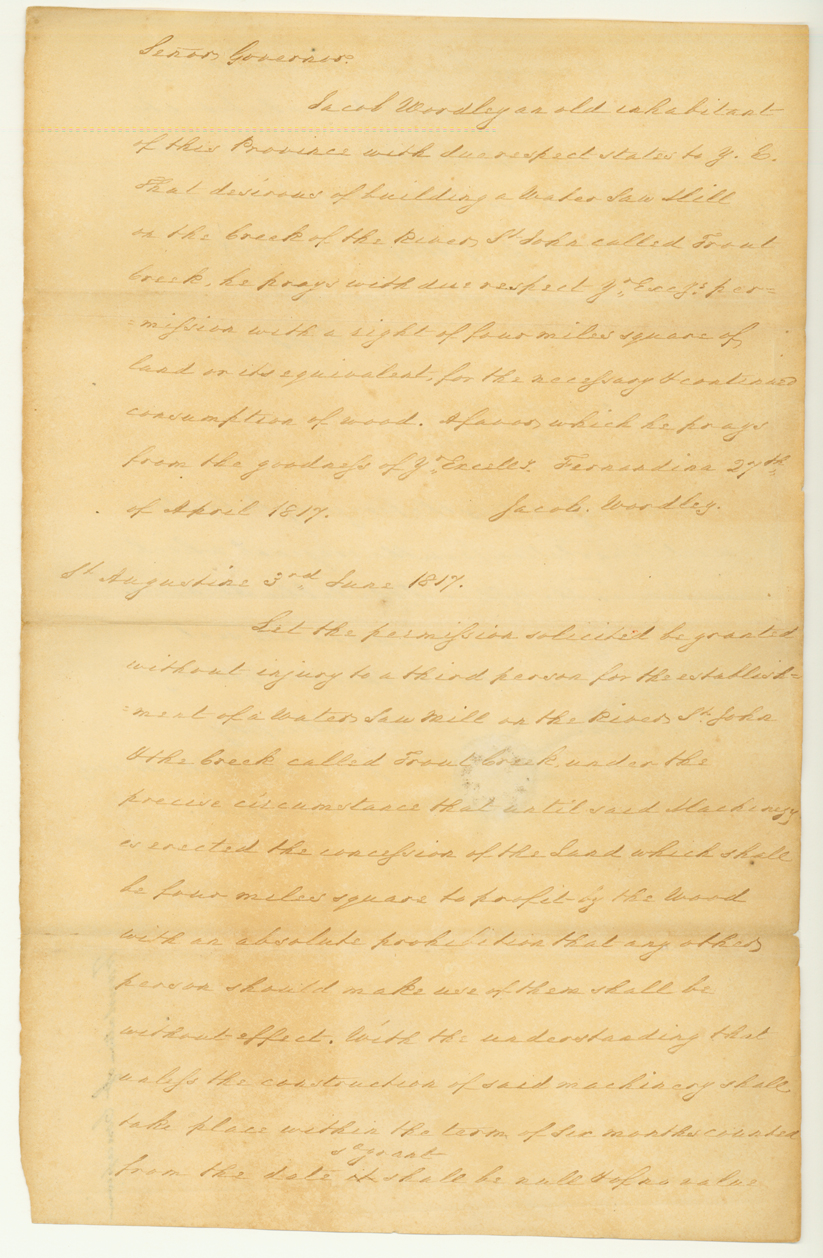 Señor Governor.
Jacob Wordley an old inhabitant
of this Province with due respect states to Y. E.
That desirous of building a Water Saw Mill
on the Creek of the River St John called Trout
Creek, he prays with due respect Yr. Excy's per=
=mission with a right of four miles square of
land or its equivalent, for the necessary & continued
consumption of wood. A favor which he prays
from the goodness of Yr. Excells. Fernandina 27th
of April 1817. Jacob. Wordley.
St Augustine 3rd June 1817.
Let the permission solicited be granted
without injury to a third person for the establish=
=ment of a Water Saw Mill on the River St. John
& the Creek called Trout Creek, under the
precise circumstance that until said Machinery
is erected the concession of the Land which shall
be four miles square to profit by the Wood
with an absolute prohibition that any other
person should make use of them shall be
without effect. With the understanding that
unless the construction of said machinery shall
take place within the term of six months counted
sd grant
from the date it shall be null & of no value